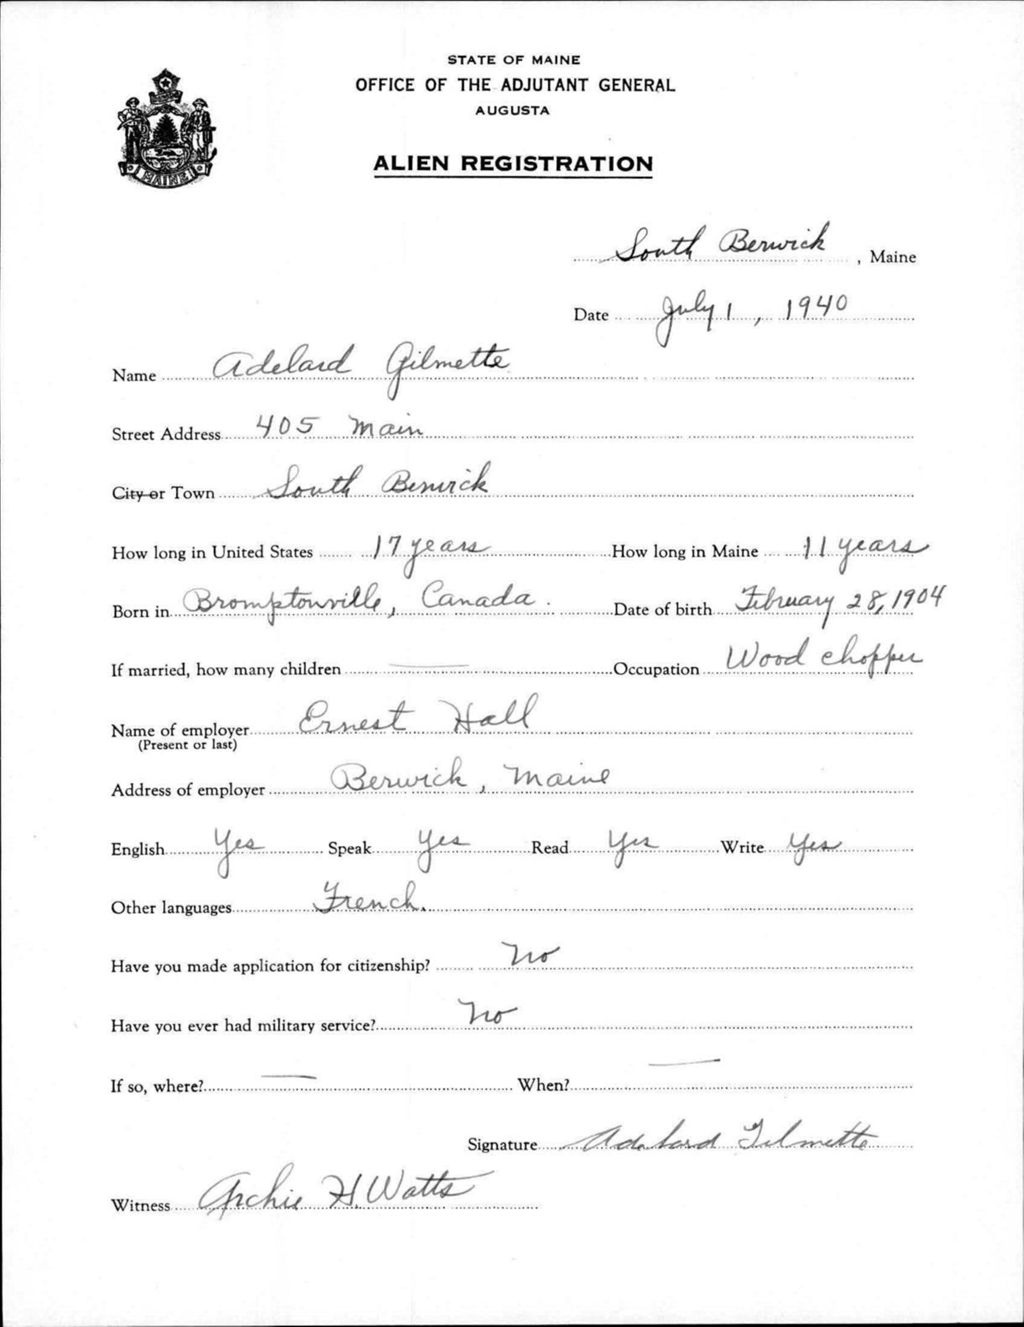 STATE OF MAINE
OFFICE OF THE ADJUTANT GENERAL
AUGUSTA
ALIEN REGISTRATION
MAINE
South Berwick, Maine
Date July 1, 1940
Name Adelard Gilmette
Street Address 405 Main
City or Town South Berwick
How long in United States 17 years How long in Maine 11 years
Born in Bromptonville, Canada. Date of birth February 28, 1904
If married, how many children — Occupation Wood chopper
Name of employer Ernest Hall
(Present or last)
Address of employer Berwick, Maine
English Yes Speak Yes Read Yes Write Yes
Other languages French.
Have you made application for citizenship? No
Have you ever had military service? No
If so, where? — When? —
Signature Adelard Gilmette
Witness Archie H. Watts